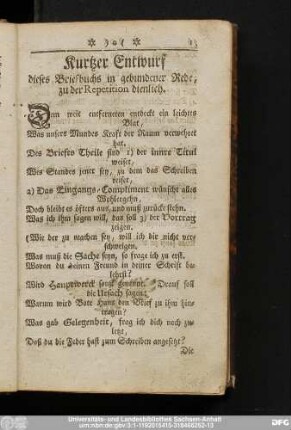 ✲ )o( ✲
Kurtzer Entwurf
dieses Briefbuchs in gebundener Rede,
zu der Repetition dienlich.
Dem weit entferneten entdeckt ein leichtes
Blat,
Was unsers Mundes Kraft der Raum verwehret
hat.
Des Briefes Theile sind 1) der innre Titul
weiset,
Wes Standes jener sey, zu dem das Schreiben
reiset,
2) Das Eingangs-Compliment wünscht alles
Wohlergehn,
Doch bleibt es öfters aus, und muß zurücke stehn,
Was ich ihm sagen will, das soll 3) der Vortrag
zeigen.
(Wie der zu machen sey, will ich dir nicht ver-
schweigen.
Was muß die Sache seyn, so frage ich zu erst.
Wovon du deinen Freund in deiner Schrift be-
lehrst?
Wird Hauptzweck sonst genennt. Drauf soll
die Ursach sagen:
Warum wird Bote dann den Brief zu ihm hin-
tragen?
Was gab Gelegenheit, frag ich dich noch zu-
letzt,
Daß du die Feder hast zum Schreiben angesetzt?
Die
Universitäts- und Landesbibliothek Sachsen-Anhalt
urn:nbn:de:gbv:3:1-1192015415-318466262-13
DFG